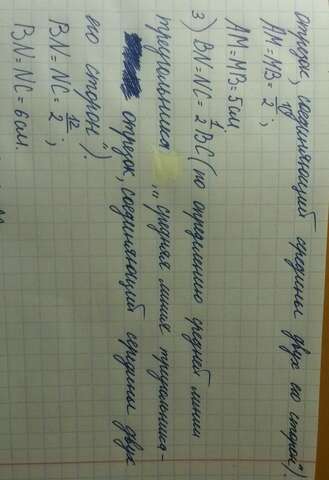 отрезок, соединяющий середины двух его сторон").
AM = MB = 10/2;
AM = MB = 5 см
3) BN = NC = 1/2 BC (по определению средней линии
треугольника „средняя линия треугольника -
отрезок, соединяющий середины двух
его сторон").
BN = NC = 12/2;
BN = NC = 6 см.